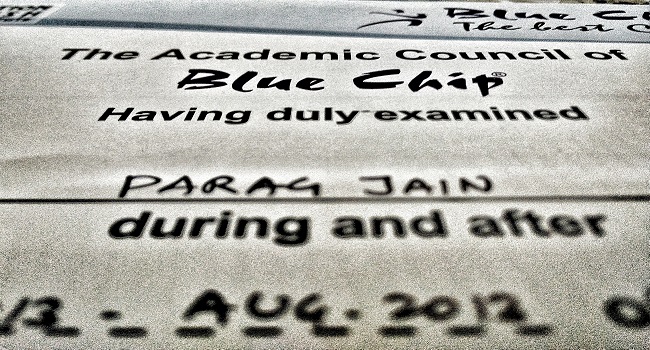 Blue C
The best C
The Academic Council of
Blue Chip®
Having duly examined
PARAG JAIN
during and after
AUG. 2012